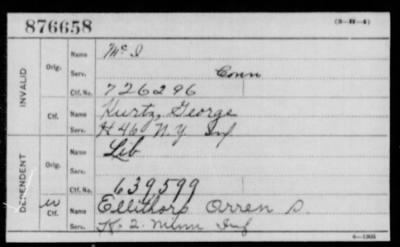 876658
(3-H-4)
INVALID
Orig.
Name Mc I
Serv. Conn
Ctf. No. 726296
Ctf.
Name Kurtz, George
Serv. H 46 N.Y. Inf
DEPENDENT
Orig.
Name Leb
Serv.
Ctf. No. 639,599
W
Ctf.
Name Ellithorp Orren D.
Serv. K. 2. Minn Inf